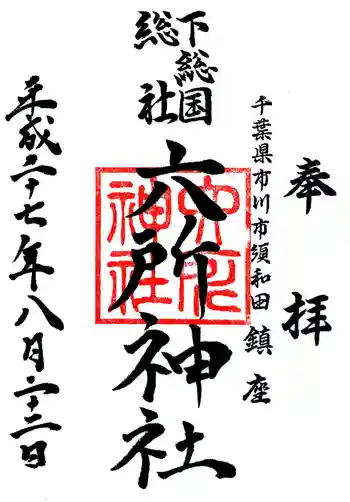 奉拝
千葉県市川市須和田鎮座
下総国
総社
六所神社
六所神社
平成二十七年八月二十二日